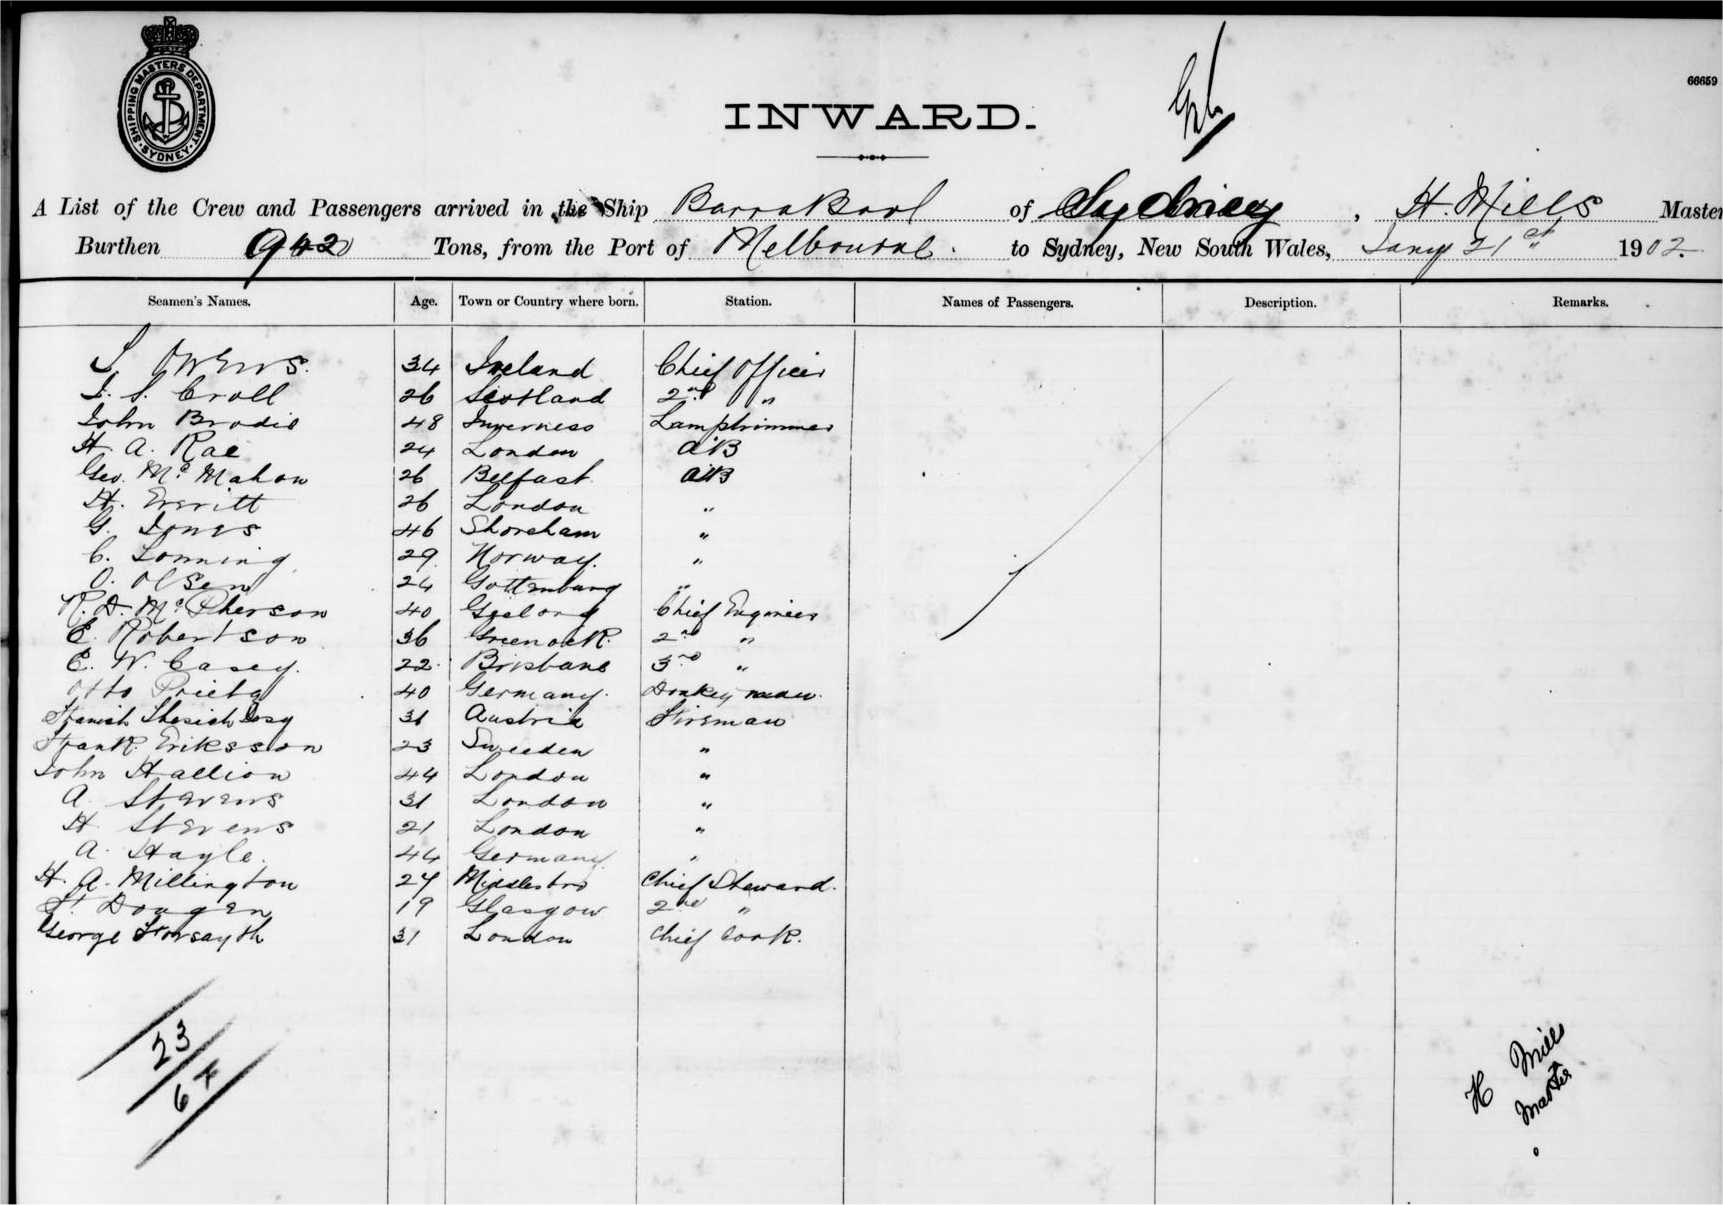 SHIPPING MASTERS DEPARTMENT
SYDNEY
66659
INWARD.
A List of the Crew and Passengers arrived in the Ship BarraBool of Sydney, H. Mills Master
Burthen 942 Tons, from the Port of Melbourne. to Sydney, New South Wales, Jany 21st 1902.
Seamen's Names. Age. Town or Country where born. Station. Names of Passengers. Description. Remarks.
S Owens. 34 Ireland Chief Officer
J. S. Croll 26 Scotland 2nd "
John Brodie 48 Inverness Lamptrimmer
H A. Rae 24 London A'B
Geo. Mc Mahon 26 Belfast A'B
H. Everitt 26 London "
G. Jones 46 Shoreham "
C. Lonning 29 Norway. "
O. Olsen 24 Gottenburg "
R. D. Mc Pherson 40 Geelong Chief Engineer
E. Robertson 36 Greenock. 2nd "
E. W. Casey. 22 Brisbane 3rd "
Otto 40 Germany. Donkeyman.
31 Austria Fireman
Frank. Eriksson 23 Sweeden "
John Hallion 44 London "
A. Stevens 31 London "
H Stevens 21 London "
A. Hayle. 44 Germany "
H. A. Millington 24 Middlesbro Chief Steward.
Dougen 19 Glasgow 2nd "
George Forsayth 31 London Chief Cook.
23
6
H Mills
Master